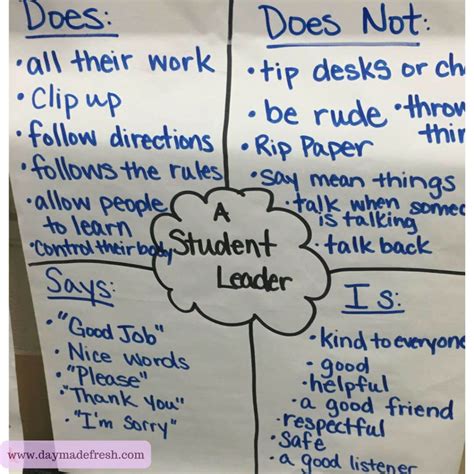 Does:
• all their work
• Clip up
• follow directions
• follows the rules
• allow people
to learn
• Control their body
Does Not:
• tip desks or ch
• be rude • throw
thin
• Rip Paper
• Say mean things
• talk when someo
is talking
• talk back
A
Student
Leader
Says:
• "Good Job"
• Nice words
• "Please"
• "Thank you"
• "I'm Sorry"
Is:
• kind to everyone
• good
• helpful
• a good friend
• respectful
• Safe
• a good listener
www.daymadefresh.com